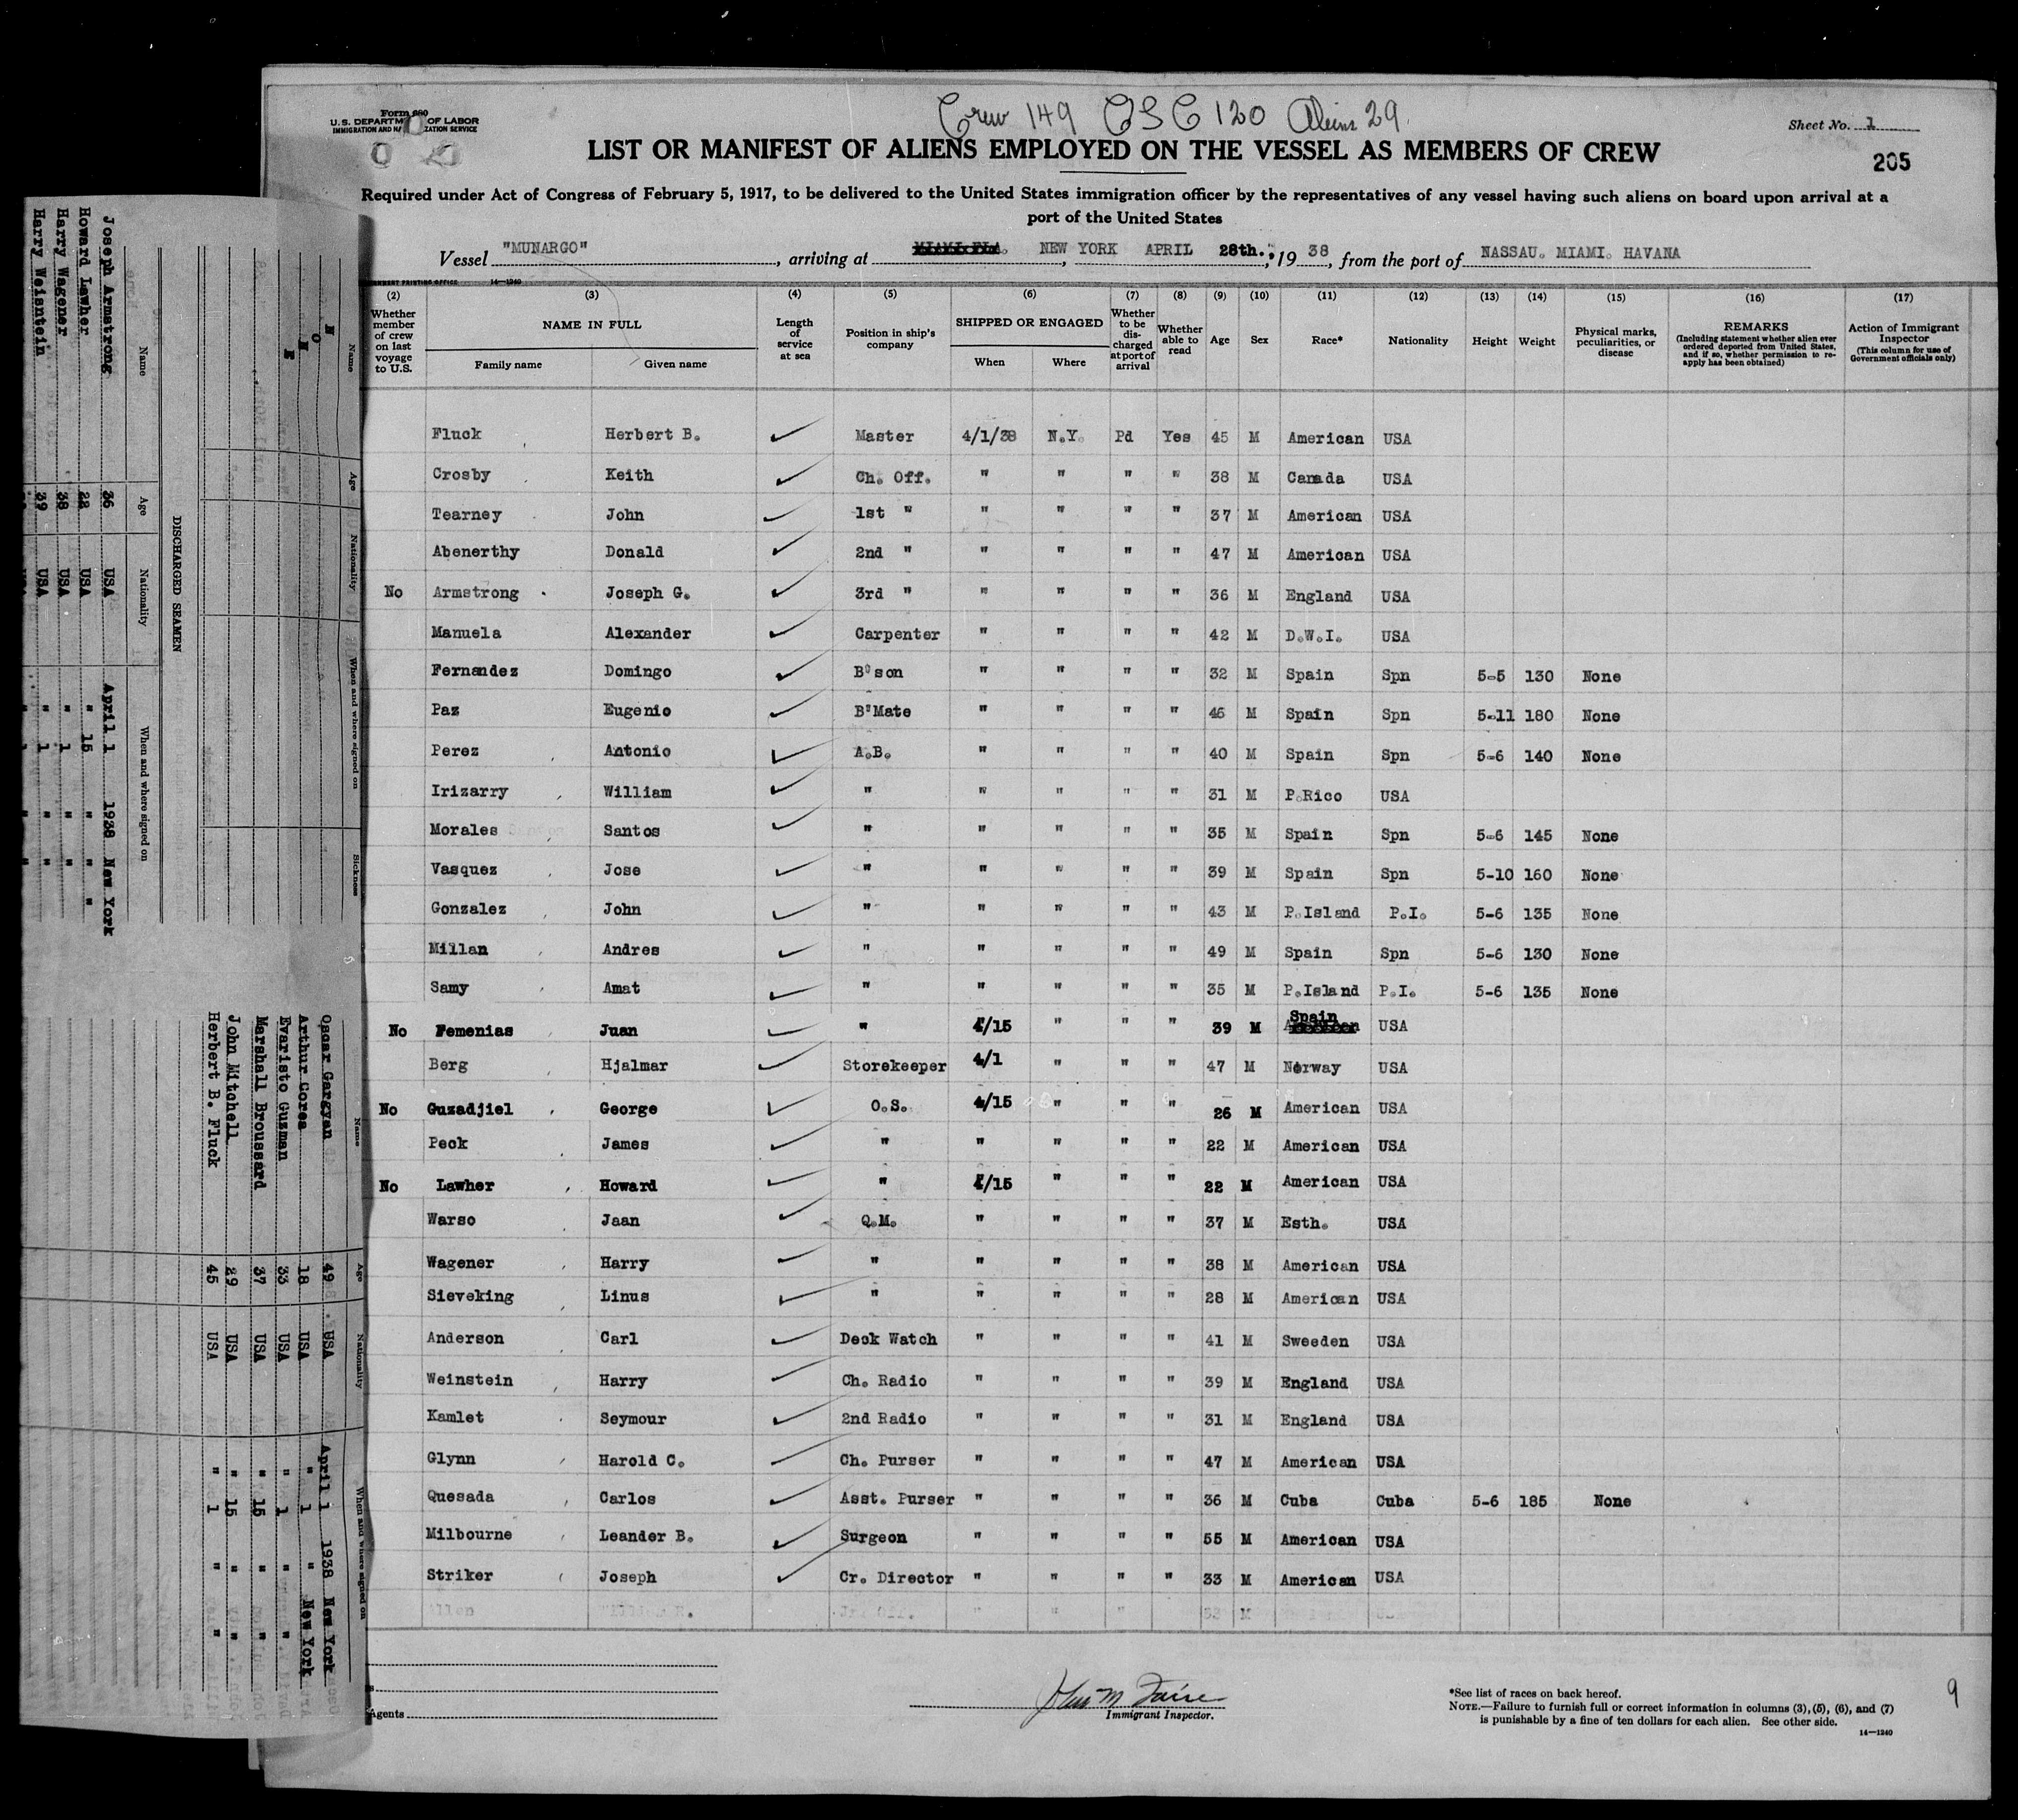 Crew 149 USC 120 Aliens 29
Form 680
U.S. DEPARTMENT OF LABOR
IMMIGRATION AND NATURALIZATION SERVICE
Sheet No. 1
205
LIST OR MANIFEST OF ALIENS EMPLOYED ON THE VESSEL AS MEMBERS OF CREW
Required under Act of Congress of February 5, 1917, to be delivered to the United States immigration officer by the representatives of any vessel having such aliens on board upon arrival at a
port of the United States
Vessel "MUNARGO", arriving at MIAMI FLA. NEW YORK APRIL 28th., 1938, from the port of NASSAU. MIAMI. HAVANA
14—1240
(2) (3) (4) (5) (6) (7) (8) (9) (10) (11) (12) (13) (14) (15) (16) (17)
Whether member of crew on last voyage to U.S. NAME IN FULL Family name Given name Length of service at sea Position in ship's company SHIPPED OR ENGAGED When Where Whether to be discharged at port of arrival Whether able to read Age Sex Race* Nationality Height Weight Physical marks, peculiarities, or disease REMARKS (Including statement whether alien ever ordered deported from United States, and if so, whether permission to reapply has been obtained) Action of Immigrant Inspector (This column for use of Government officials only)
Fluck Herbert B. Master 4/1/38 N.Y. Pd Yes 45 M American USA
Crosby Keith Ch. Off. " " " " 38 M Canada USA
Tearney John 1st " " " " " 37 M American USA
Abenerthy Donald 2nd " " " " " 47 M American USA
No Armstrong Joseph G. 3rd " " " " " 36 M England USA
Manuela Alexander Carpenter " " " " 42 M D.W.I. USA
Fernandez Domingo B'son " " " " 32 M Spain Spn 5-5 130 None
Paz Eugenio B"Mate " " " " 45 M Spain Spn 5-11 180 None
Perez Antonio A.B. " " " " 40 M Spain Spn 5-6 140 None
Irizarry William " " " " " 31 M P.Rico USA
Morales Santos " " " " " 35 M Spain Spn 5-6 145 None
Vasquez Jose " " " " " 39 M Spain Spn 5-10 160 None
Gonzalez John " " " " " 43 M P.Island P.I. 5-6 135 None
Millan Andres " " " " " 49 M Spain Spn 5-6 130 None
Samy Amat " " " " " 35 M P.Island P.I. 5-6 135 None
No Femenias Juan " 4/15 " " " 39 M Spain USA
Berg Hjalmar Storekeeper 4/1 " " " 47 M Norway USA
No Guzadjiel George O.S. 4/15 " " " 26 M American USA
Peck James " " " " " 22 M American USA
No Lawher Howard " 4/15 " " " 22 M American USA
Warso Jaan Q.M. " " " " 37 M Esth. USA
Wagener Harry " " " " " 38 M American USA
Sieveking Linus " " " " " 28 M American USA
Anderson Carl Deck Watch " " " " 41 M Sweeden USA
Weinstein Harry Ch. Radio " " " " 39 M England USA
Kamlet Seymour 2nd Radio " " " " 31 M England USA
Glynn Harold C. Ch. Purser " " " " 47 M American USA
Quesada Carlos Asst. Purser " " " " 36 M Cuba Cuba 5-6 185 None
Milbourne Leander B. Surgeon " " " " 55 M American USA
Striker Joseph Cr. Director " " " " 33 M American USA
Agents
Immigrant Inspector.
*See list of races on back hereof.
NOTE.—Failure to furnish full or correct information in columns (3), (5), (6), and (7)
is punishable by a fine of ten dollars for each alien. See other side.
14—1240
9
DISCHARGED SEAMEN
Name Age Nationality When and where signed on
Joseph Armstrong 36 USA April 1 1938 New York
Howard Lawher 22 USA " 15 " " "
Harry Wagener 38 USA " 1 " "
Harry Weisntein 39 USA " 1 " "
Name Age Nationality When and where signed on Sickness
Name Age Nationality When and where signed on
Oscar Gargyan 49 USA April 1 1938 New York
Arthur Cores 18 USA " 1 " New York
Evaristo Guzman 33 USA " 1 " "
Marshall Broussard 37 USA " 15 " "
John Mitchell 29 USA " 15 " "
Herbert B. Fluck 45 USA " 1 " "